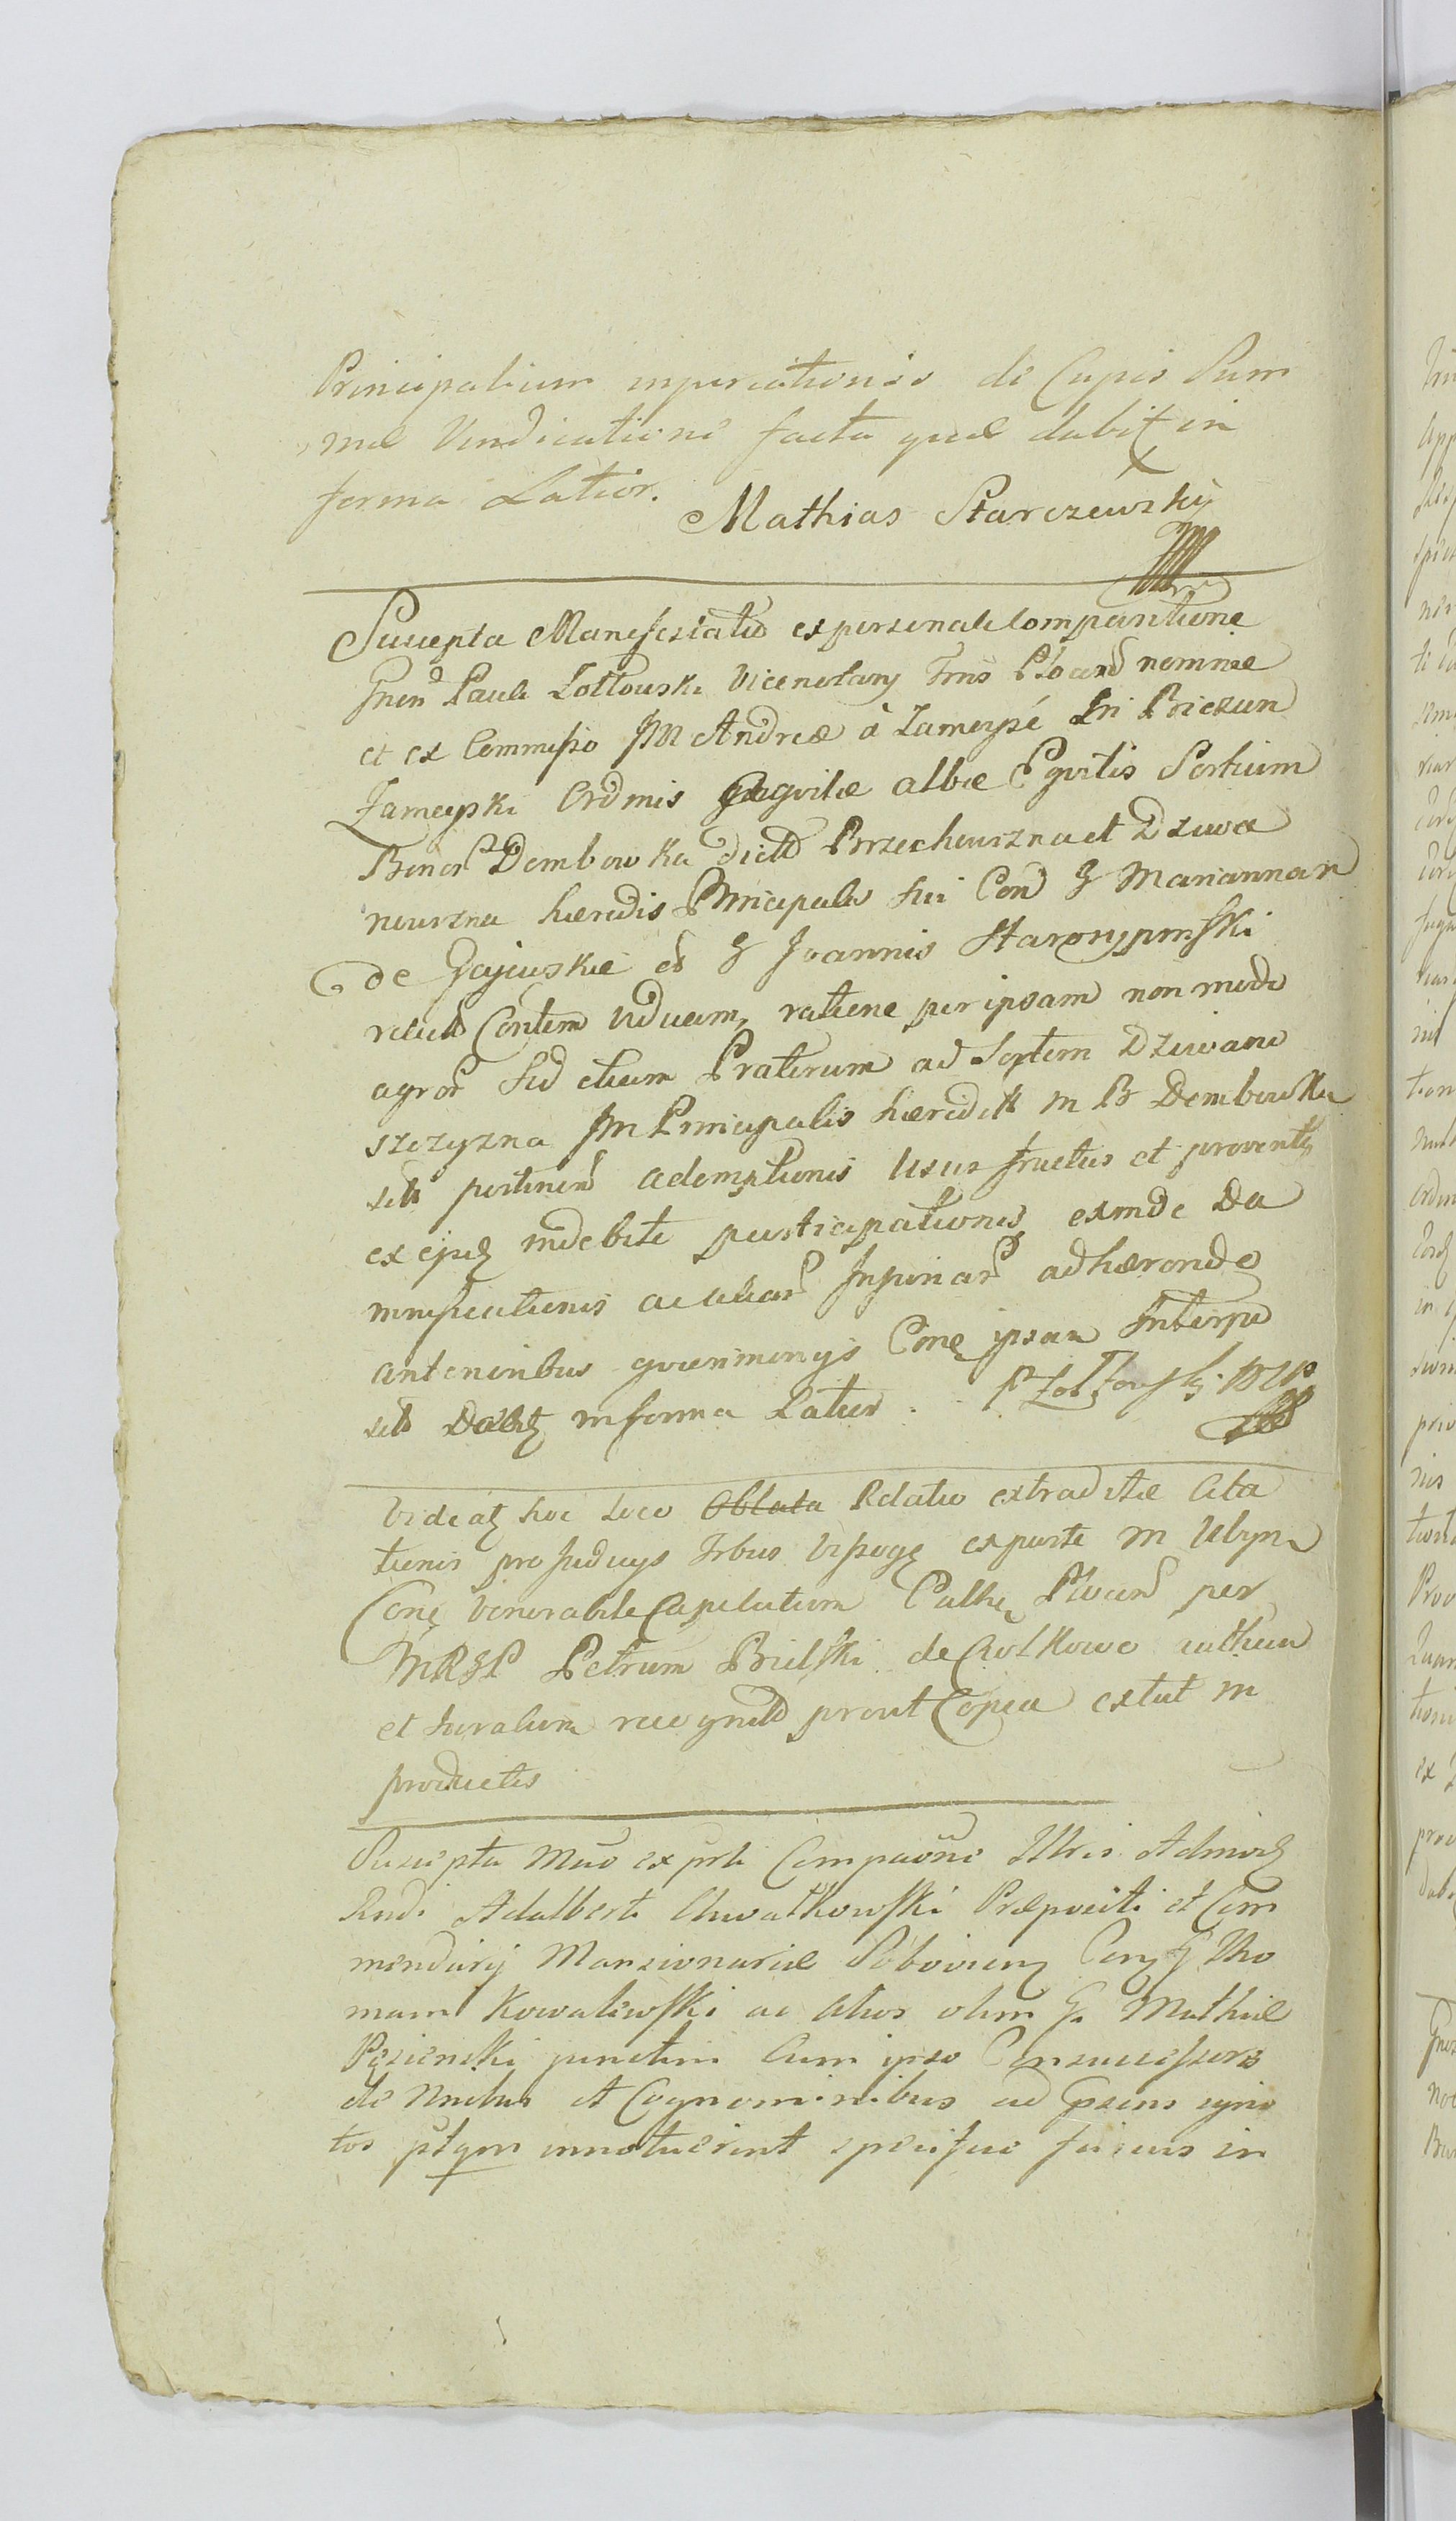 Principalium injuriationis de Capis Sum
mæ Vindicatione facta quæ dabit in
forma Latior.
Mathias Starczewsky
Suscepta Manifestatio ex personali Comparitione
Gnen Pauli Zołtowski Vicenotary Trris Płocens nomine
et ex Commisso JM Andreæ à Zamoysé In Biezun
Zamoyski Ordinis Aquilæ albæ Equitis Sortium
Bonor Dembowka dicto Brzechowszna et Dziwa
nowszna hæredis Principalis sui Con G Mariannam
de Gajewskie ol G Joannis Starorypinski
relicto Contem viduam, ratione per ipsam non modo
agror sed etiam Pratorum ad Sortem Dziwano
szczyzna JM Principalis hæredit in B Dembowka
sito pertinen ademptionis Usus fructus et provent
ex ejus indebite participationis exinde Da
mnificationis ac aliar Injuriar adhærendo
anterioribus quærimonys Cone ipsam Interpo
sito Dabit in forma Latior. P Zołtowski VNP
Videat hoc loco Oblata Relatio extraditæ Cita
tionis pro Judicys Trbus ex parte M
Cone Venerabile Capitulum Cathe Płocen per
MRGP Petrum Bielski de authen
et Juratum recognito prout Copia extat in
productis
Suscepta Mão ex prli Compaõne Illris Admod
Rndi Adalberti Chwałkowski Præpositi et Com
mendarij Mansionariæ Con G Tho
mam Kowalewski ac alios olim G Mathiæ
junctim Cum ipso Consuccessores
de Nnibus et Cognominibus ad Gpsens igno
tos ptqm innotuerint specifice in